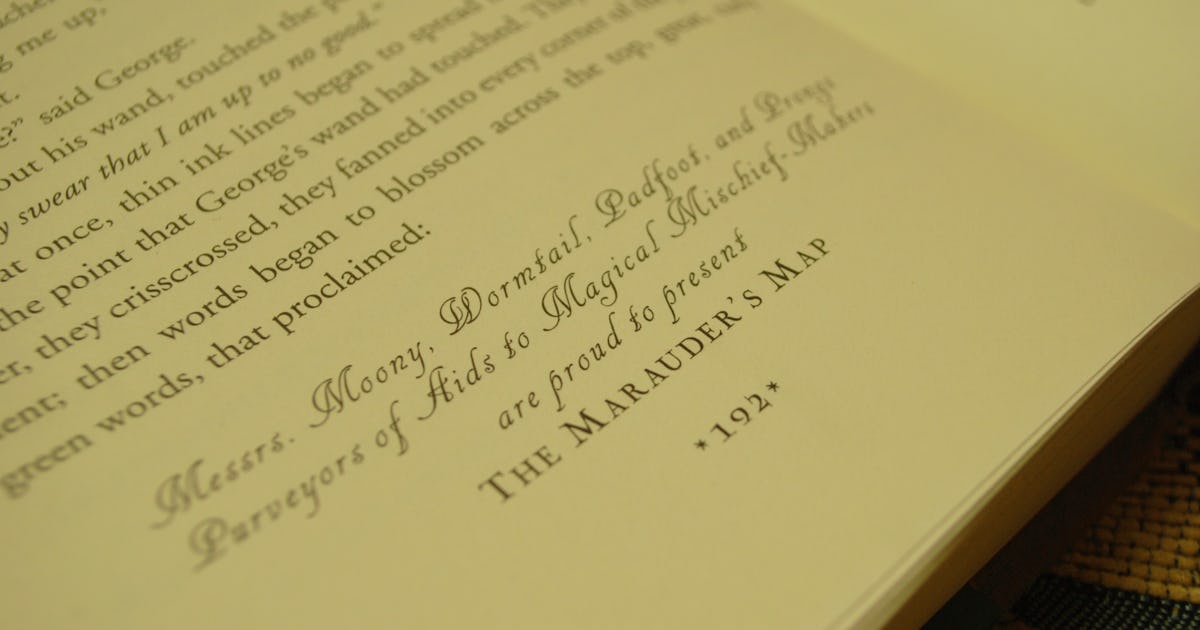 g me up,
t.
e?" said George.
out his wand, touched the
y swear that I am up to no good."
at once, thin ink lines began to spread
the point that George's wand had touched. They
er, they crisscrossed, they fanned into every corner of the
ent; then words began to blossom across the top, great,
green words, that proclaimed:
Messrs. Moony, Wormtail, Padfoot, and Prongs
Purveyors of Aids to Magical Mischief-Makers
are proud to present
THE MARAUDER'S MAP
*192*